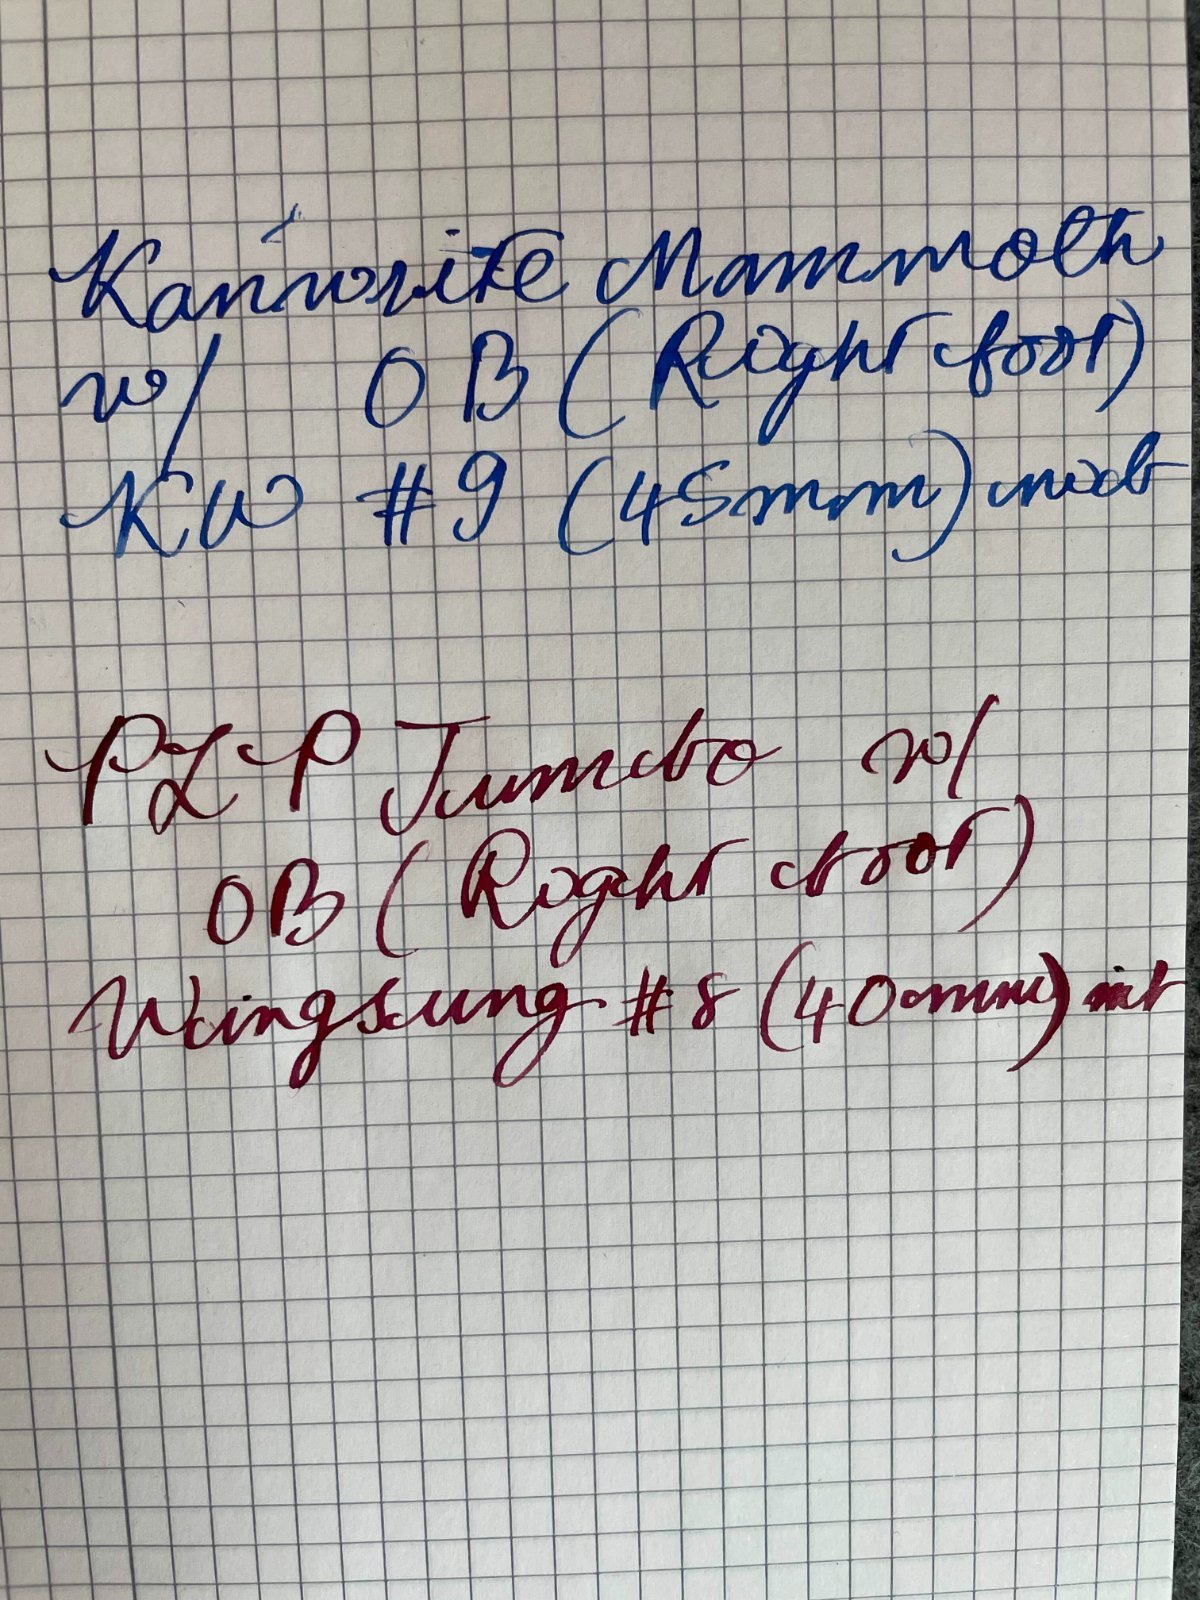 Kanwrite Mammoth
w/ OB (Right foot)
KW #9 (45mm) nib
PLP Jumbo w/
OB (Right foot)
Wingsung #8 (40mm) nib